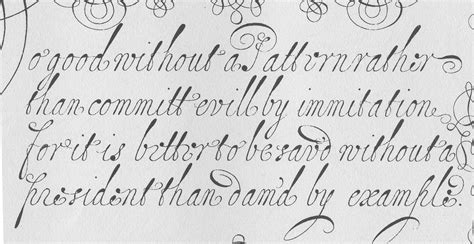 o good without a Pattern rather
than committ evill by immitation
for it is better to be savd without a
president than damd by example.